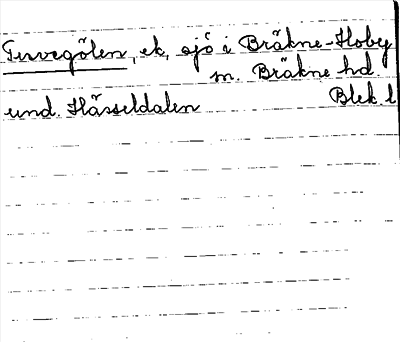 Tervegölen, ek, sjö i Bräkne-Hoby
sn. Bräkne hd.
und. Hässeldalen Blek. l